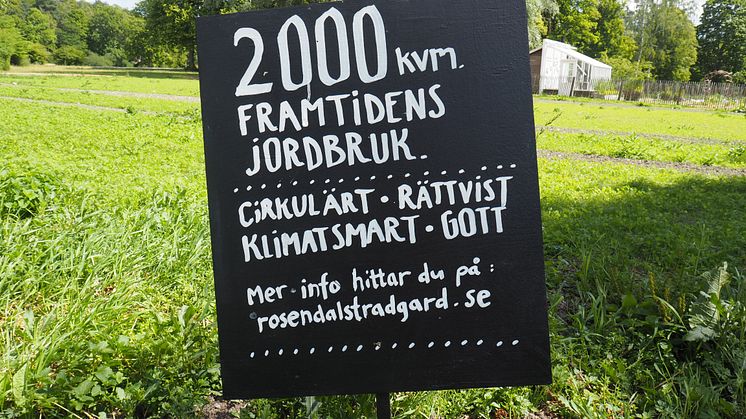 2000 kvm.
FRAMTIDENS
JORDBRUK.
CIRKULÄRT · RÄTTVIST
KLIMATSMART · GOTT
Mer info hittar du på:
rosendalstradgard.se